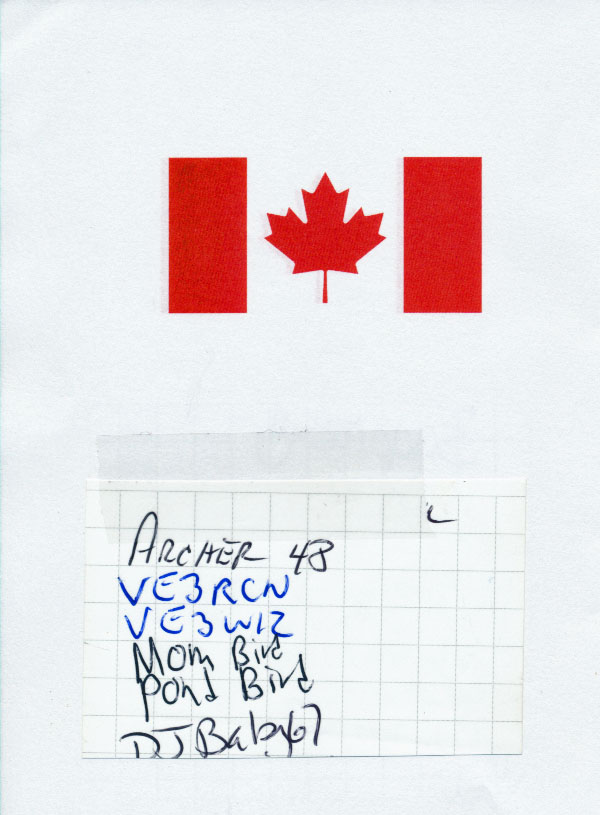 ARCHER 48
VE3RCN
VE3WIZ
Mom Bird
Pond Bird
DJBaby67